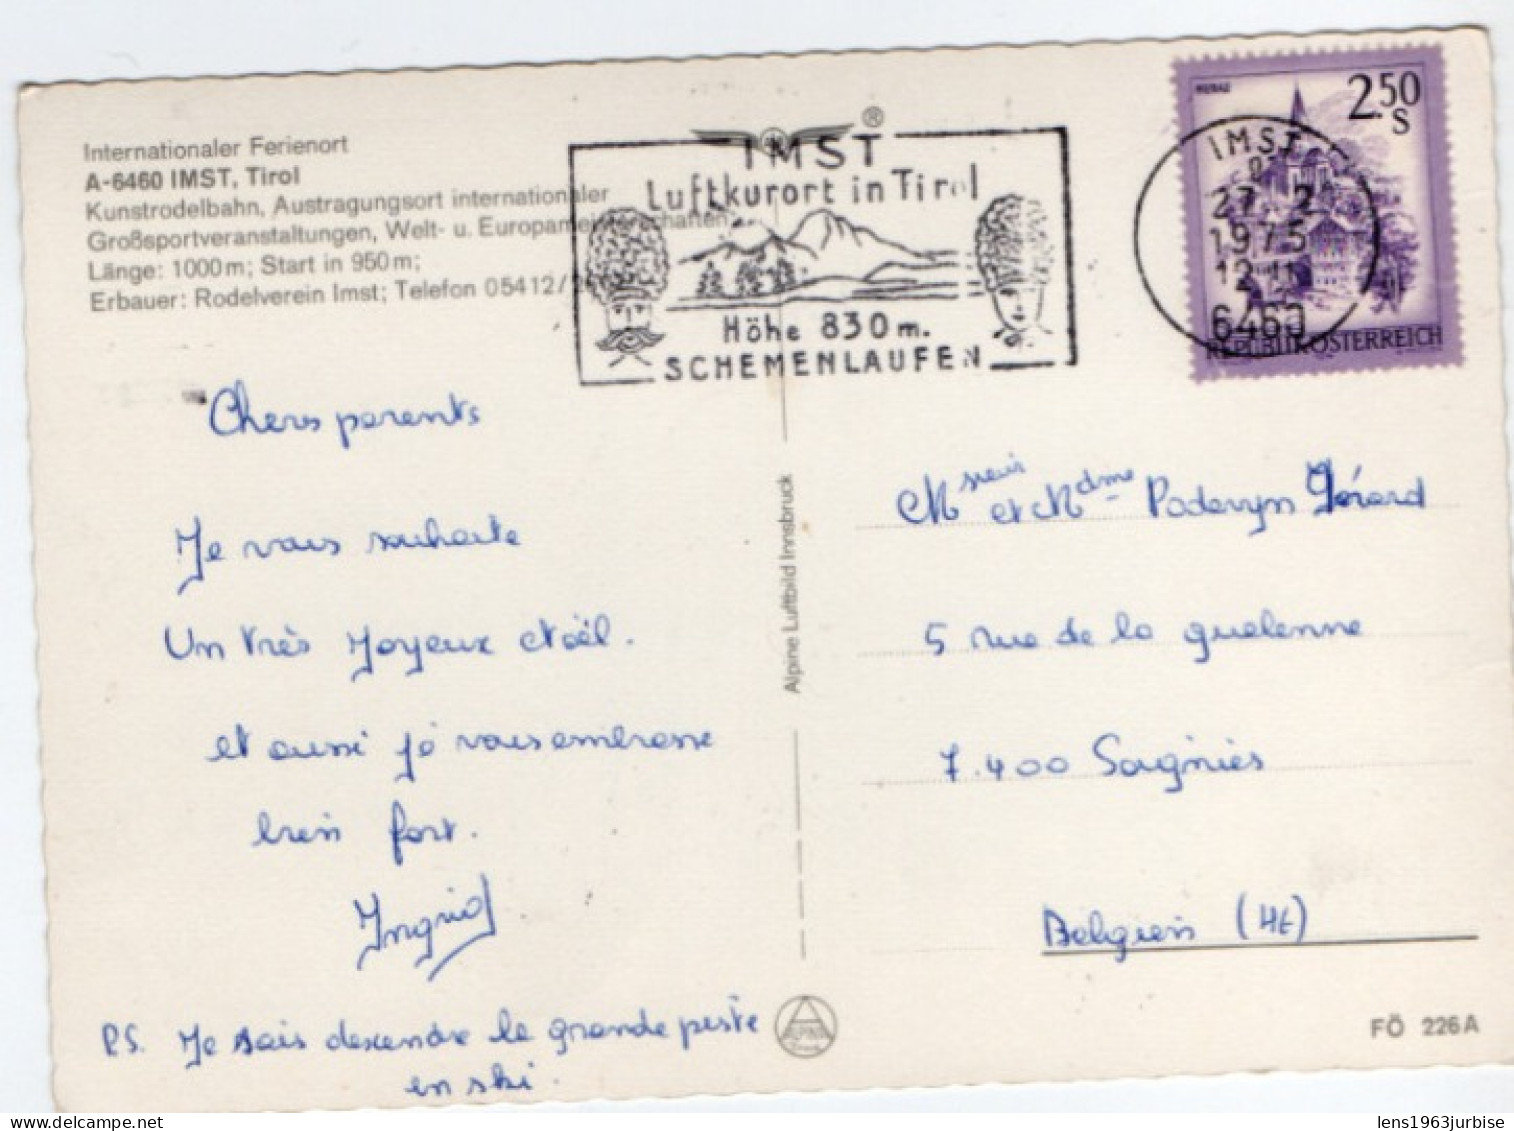 Internationaler Ferienort
A-6460 IMST, Tirol
Kunstrodelbahn, Austragungsort internationaler
Großsportveranstaltungen, Welt- u. Europameisterschaften,
Länge: 1000 m; Start in 950 m;
Erbauer: Rodelverein Imst; Telefon 05412/
®
IMST
Luftkurort in Tirol
Höhe 830 m.
SCHEMENLAUFEN
MURAU
2.50
S
IMST
27.2
1975
12
6460
REPUBLIK ÖSTERREICH
Chers parents
Je vous souhaite
Un très Joyeux Noël.
et aussi je vous embrasse
bien fort.
Ingrid
P.S. Je sais descendre la grande piste
en ski.
Alpine Luftbild Innsbruck
Msieur et Mdme Poderyn Gérard
5 rue de la guelenne
7.400 Soignies
Belgien (Ht)
ALPINE
FÖ 226A
lens1963jurbise